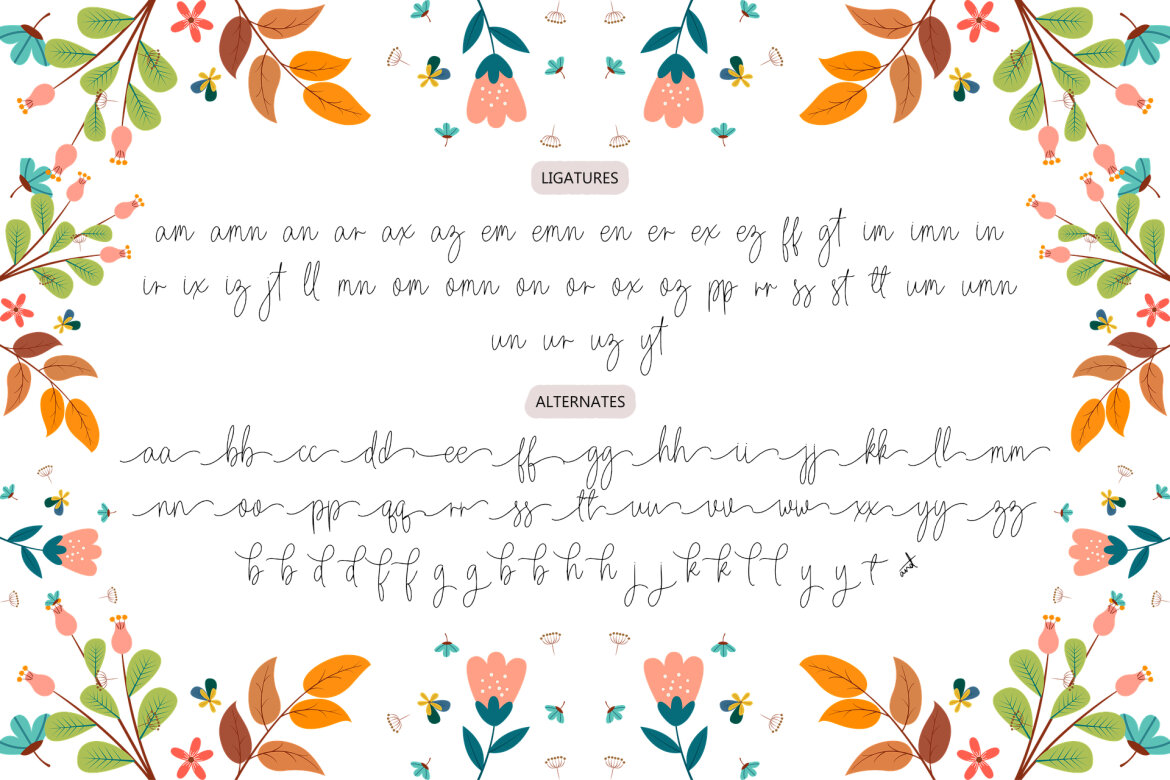 LIGATURES
am amn an ar ax az em emn en er ex ez ff gt im imn in
ir ix iz jt ll mn om omn on or ox oz pp rr ss st tt um umn
un ur uz yt
ALTERNATES
aa bb cc dd ee ff gg hh ii jj kk ll mm
nn oo pp qq rr ss tt uu vv ww xx yy zz
b b d d f f g g b b h h j j k k l l y y t and